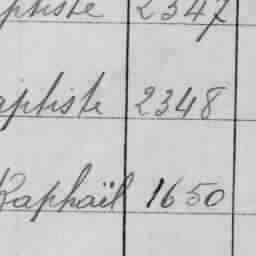 ptiste 2347
aptiste 2348
Raphaïl 1650